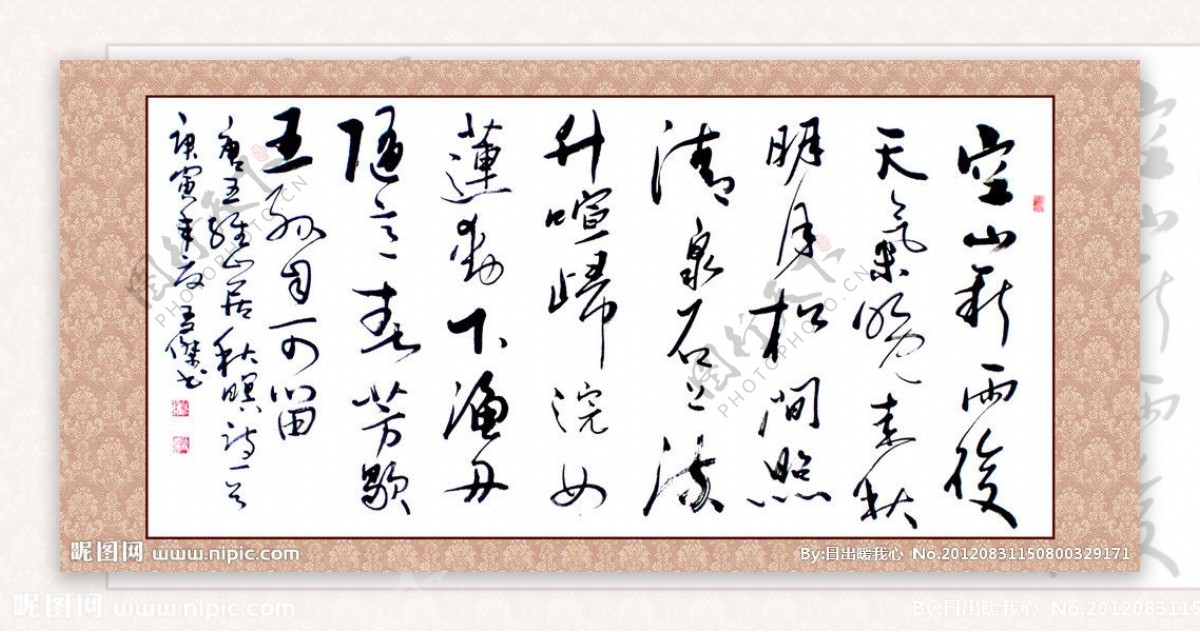 空山新雨後
天氣晚来秋
明月松間照
清泉石上流
竹喧歸浣女
蓮動下漁舟
隨意春芳歇
王孫自可留
唐王維山居秋暝詩一首
庚寅年夏 傑书
图行天下
PHOTOPHOTO.CN
图行天下
PHOTOPHOTO.CN
昵图网 www.nipic.com
By:日出暖我心 No.20120831150800329171
昵图网 www.nipic.com
By:日出暖我心 No.2012083115